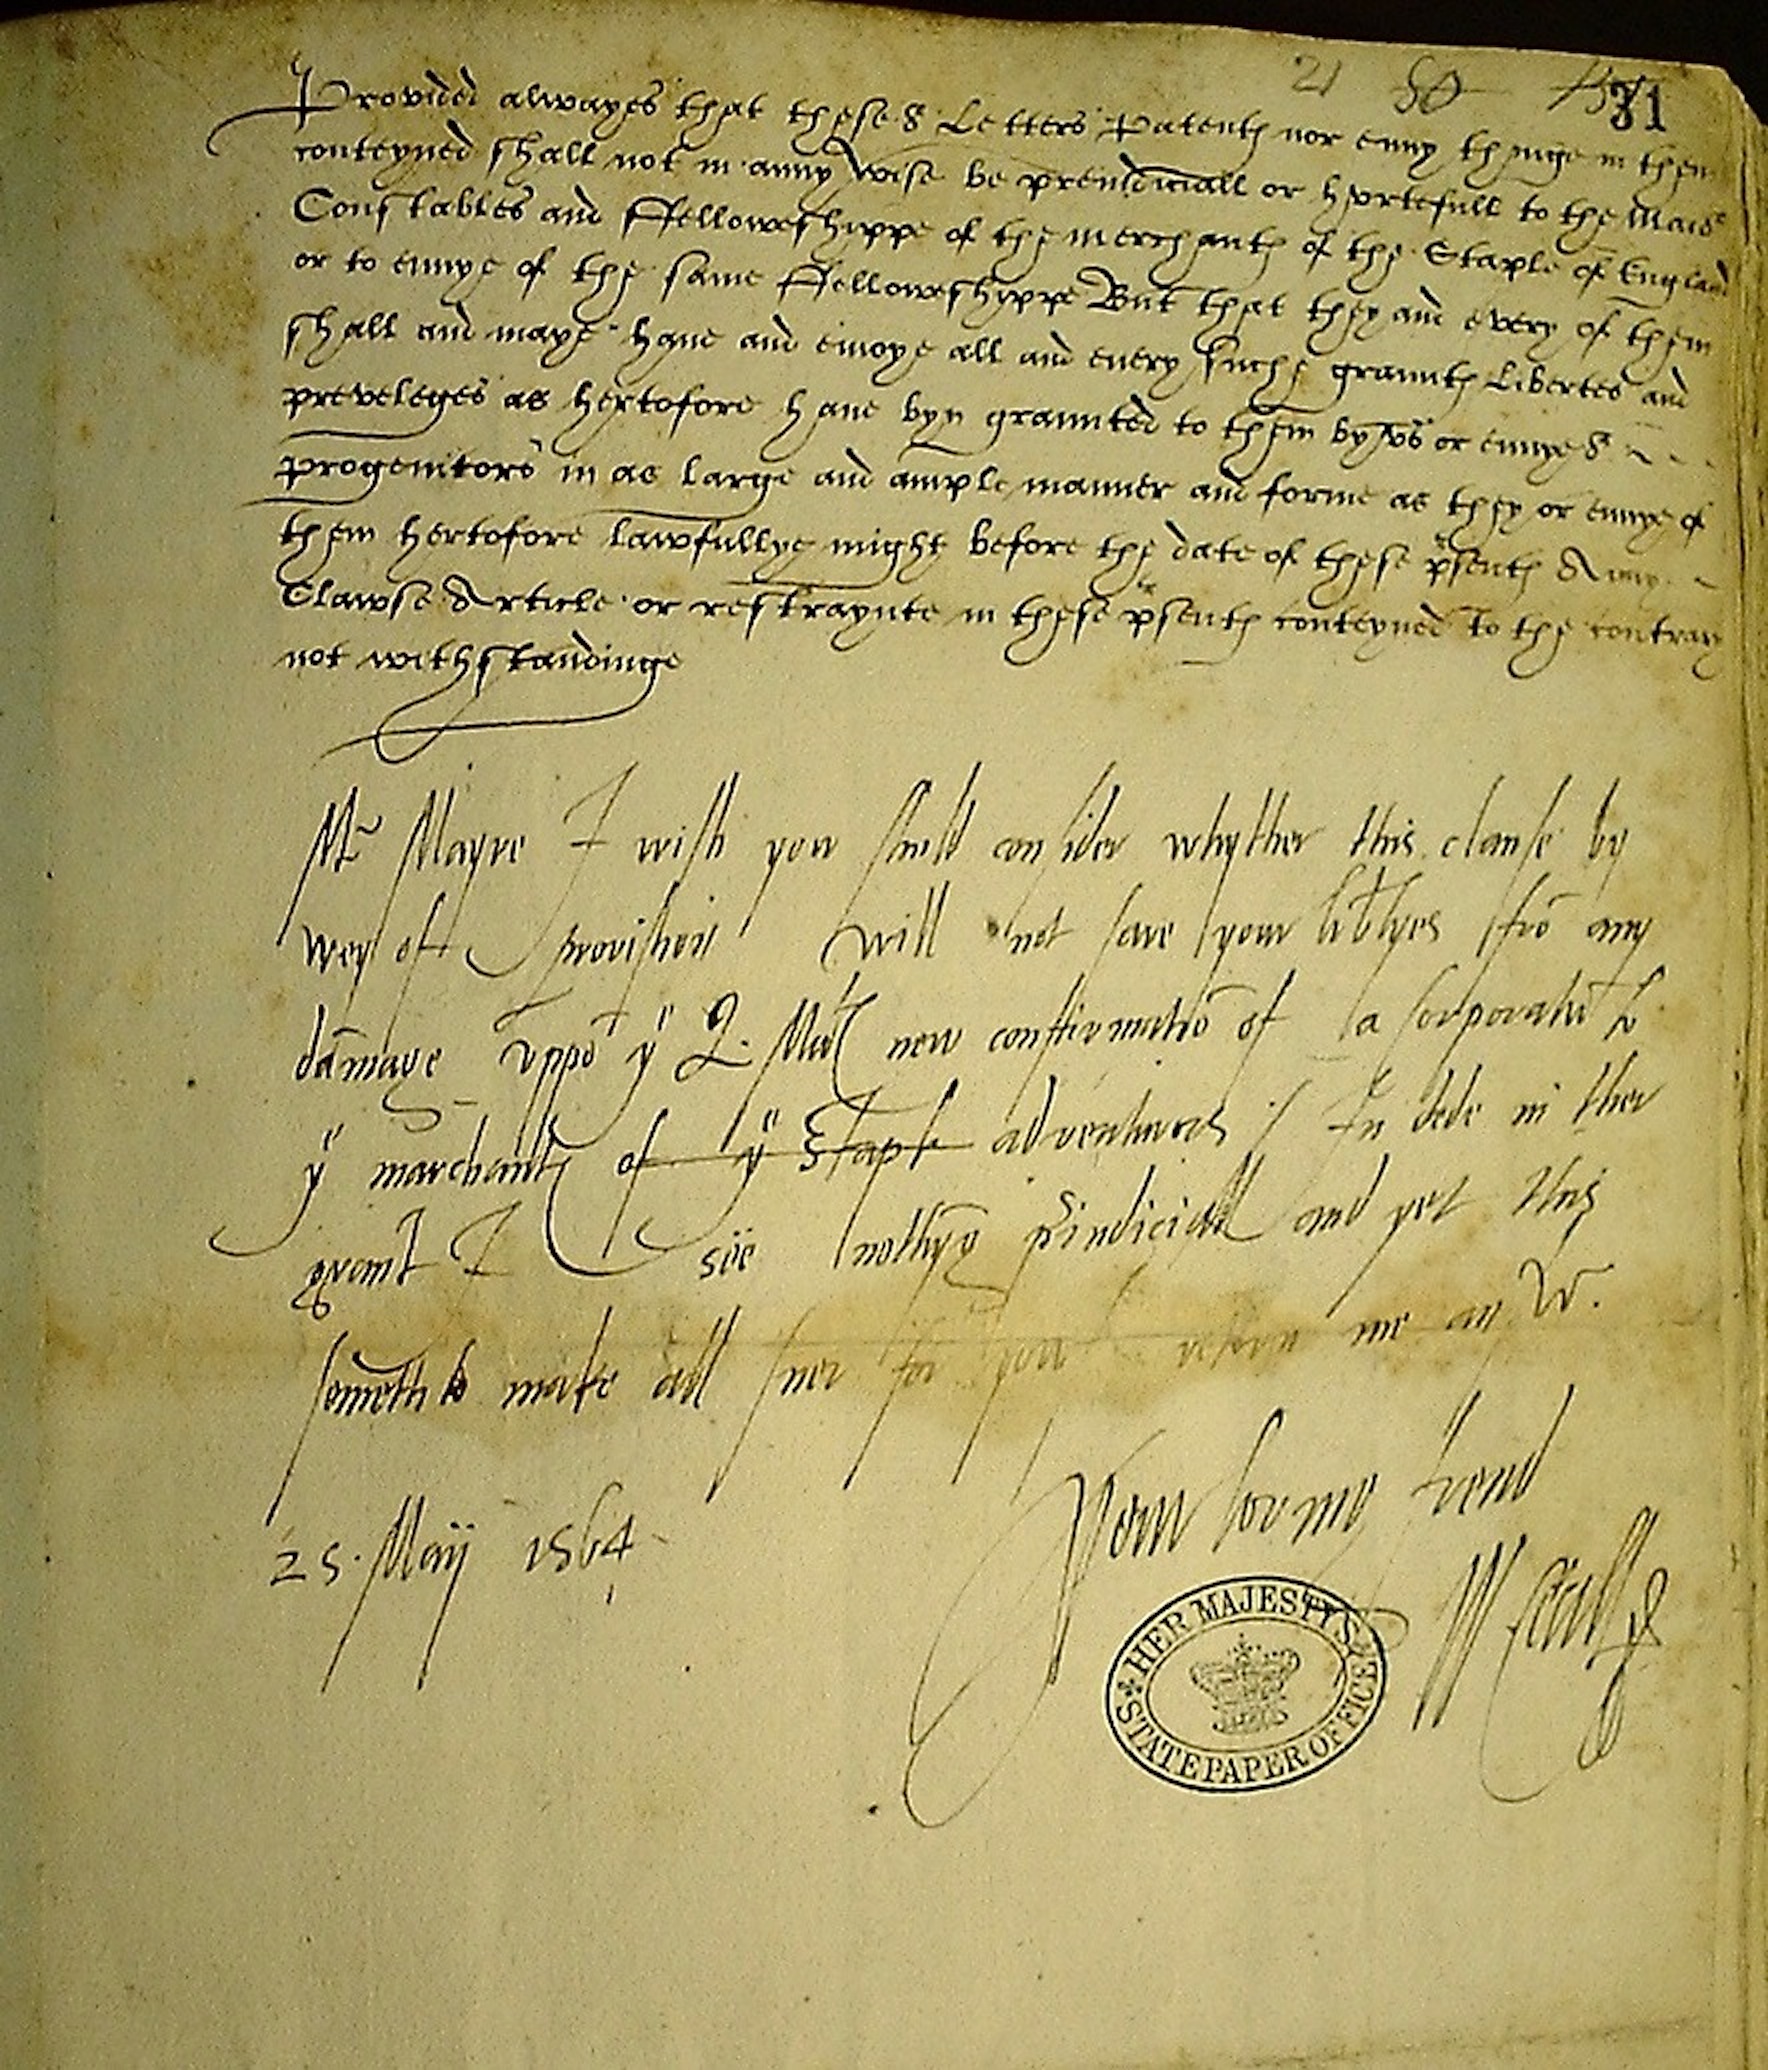 21 50 31
Provided alwayes that these or Letters Patents nor enny thinge in them
conteyned shall not in anny wise be preiudiciall or hurtefull to the Maior
Constables and Ffelloweshippe of the merchants of the Staple of England
or to ennye of the same Ffelloweshippe But that they and every of them
shall and maye haue and enioye all and euery suche graunts Libertes and
preveleges as hertofore haue byn graunted to them by vs or ennye or
progenitors in as large and ample manner and forme as they or ennye of
them hertofore lawfullye might before the date of these psents Anny
Clawse Article or restraynte in these psents conteyned to the contrary
not withstandinge
Mr Mayre I wish you shuld consider whyther this clause by
wey of provision will not save your libtyes fro any
damage uppo ye Q. Maty new confirmatio of a corporatio to
ye marchants of ye Staple adventurers / In dede in ther
graunt I see nothyng piudiciall and yet this
somethi to make all suer for you retorn me an W.
25. Maij 1564
Your loving frend
W Cecill
HER MAJESTYS
STATE PAPER OFFICE